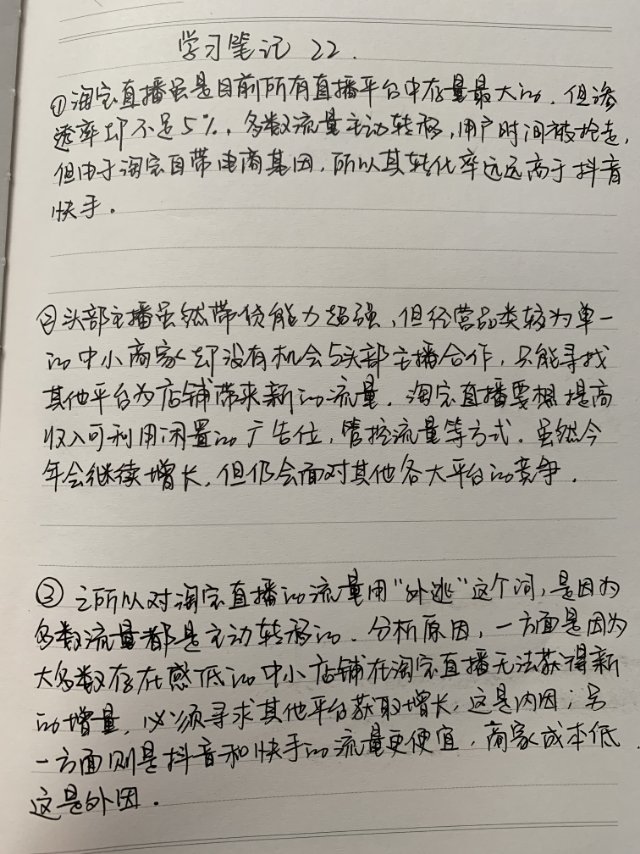 学习笔记 22.
①淘宝直播虽是目前所有直播平台中存量最大的.但渗
透率却不足5%,多数流量主动转移,用户时间被抢走,
但由于淘宝自带电商基因,所以其转化率远远高于抖音
快手.
②头部主播虽然带货能力超强,但经营品类较为单一
的中小商家却没有机会与头部主播合作,只能寻找
其他平台为店铺带来新的流量.淘宝直播要想提高
收入可利用闲置的广告位,管控流量等方式.虽然今
年会继续增长,但仍会面对其他各大平台的竞争.
③之所以对淘宝直播的流量用“外逃”这个词,是因为
多数流量都是主动转移的.分析原因,一方面是因为
大多数存在感低的中小店铺在淘宝直播无法获得新
的增量,必须寻求其他平台获取增长,这是内因;另
一方面则是抖音和快手的流量更便宜,商家成本低.
这是外因.